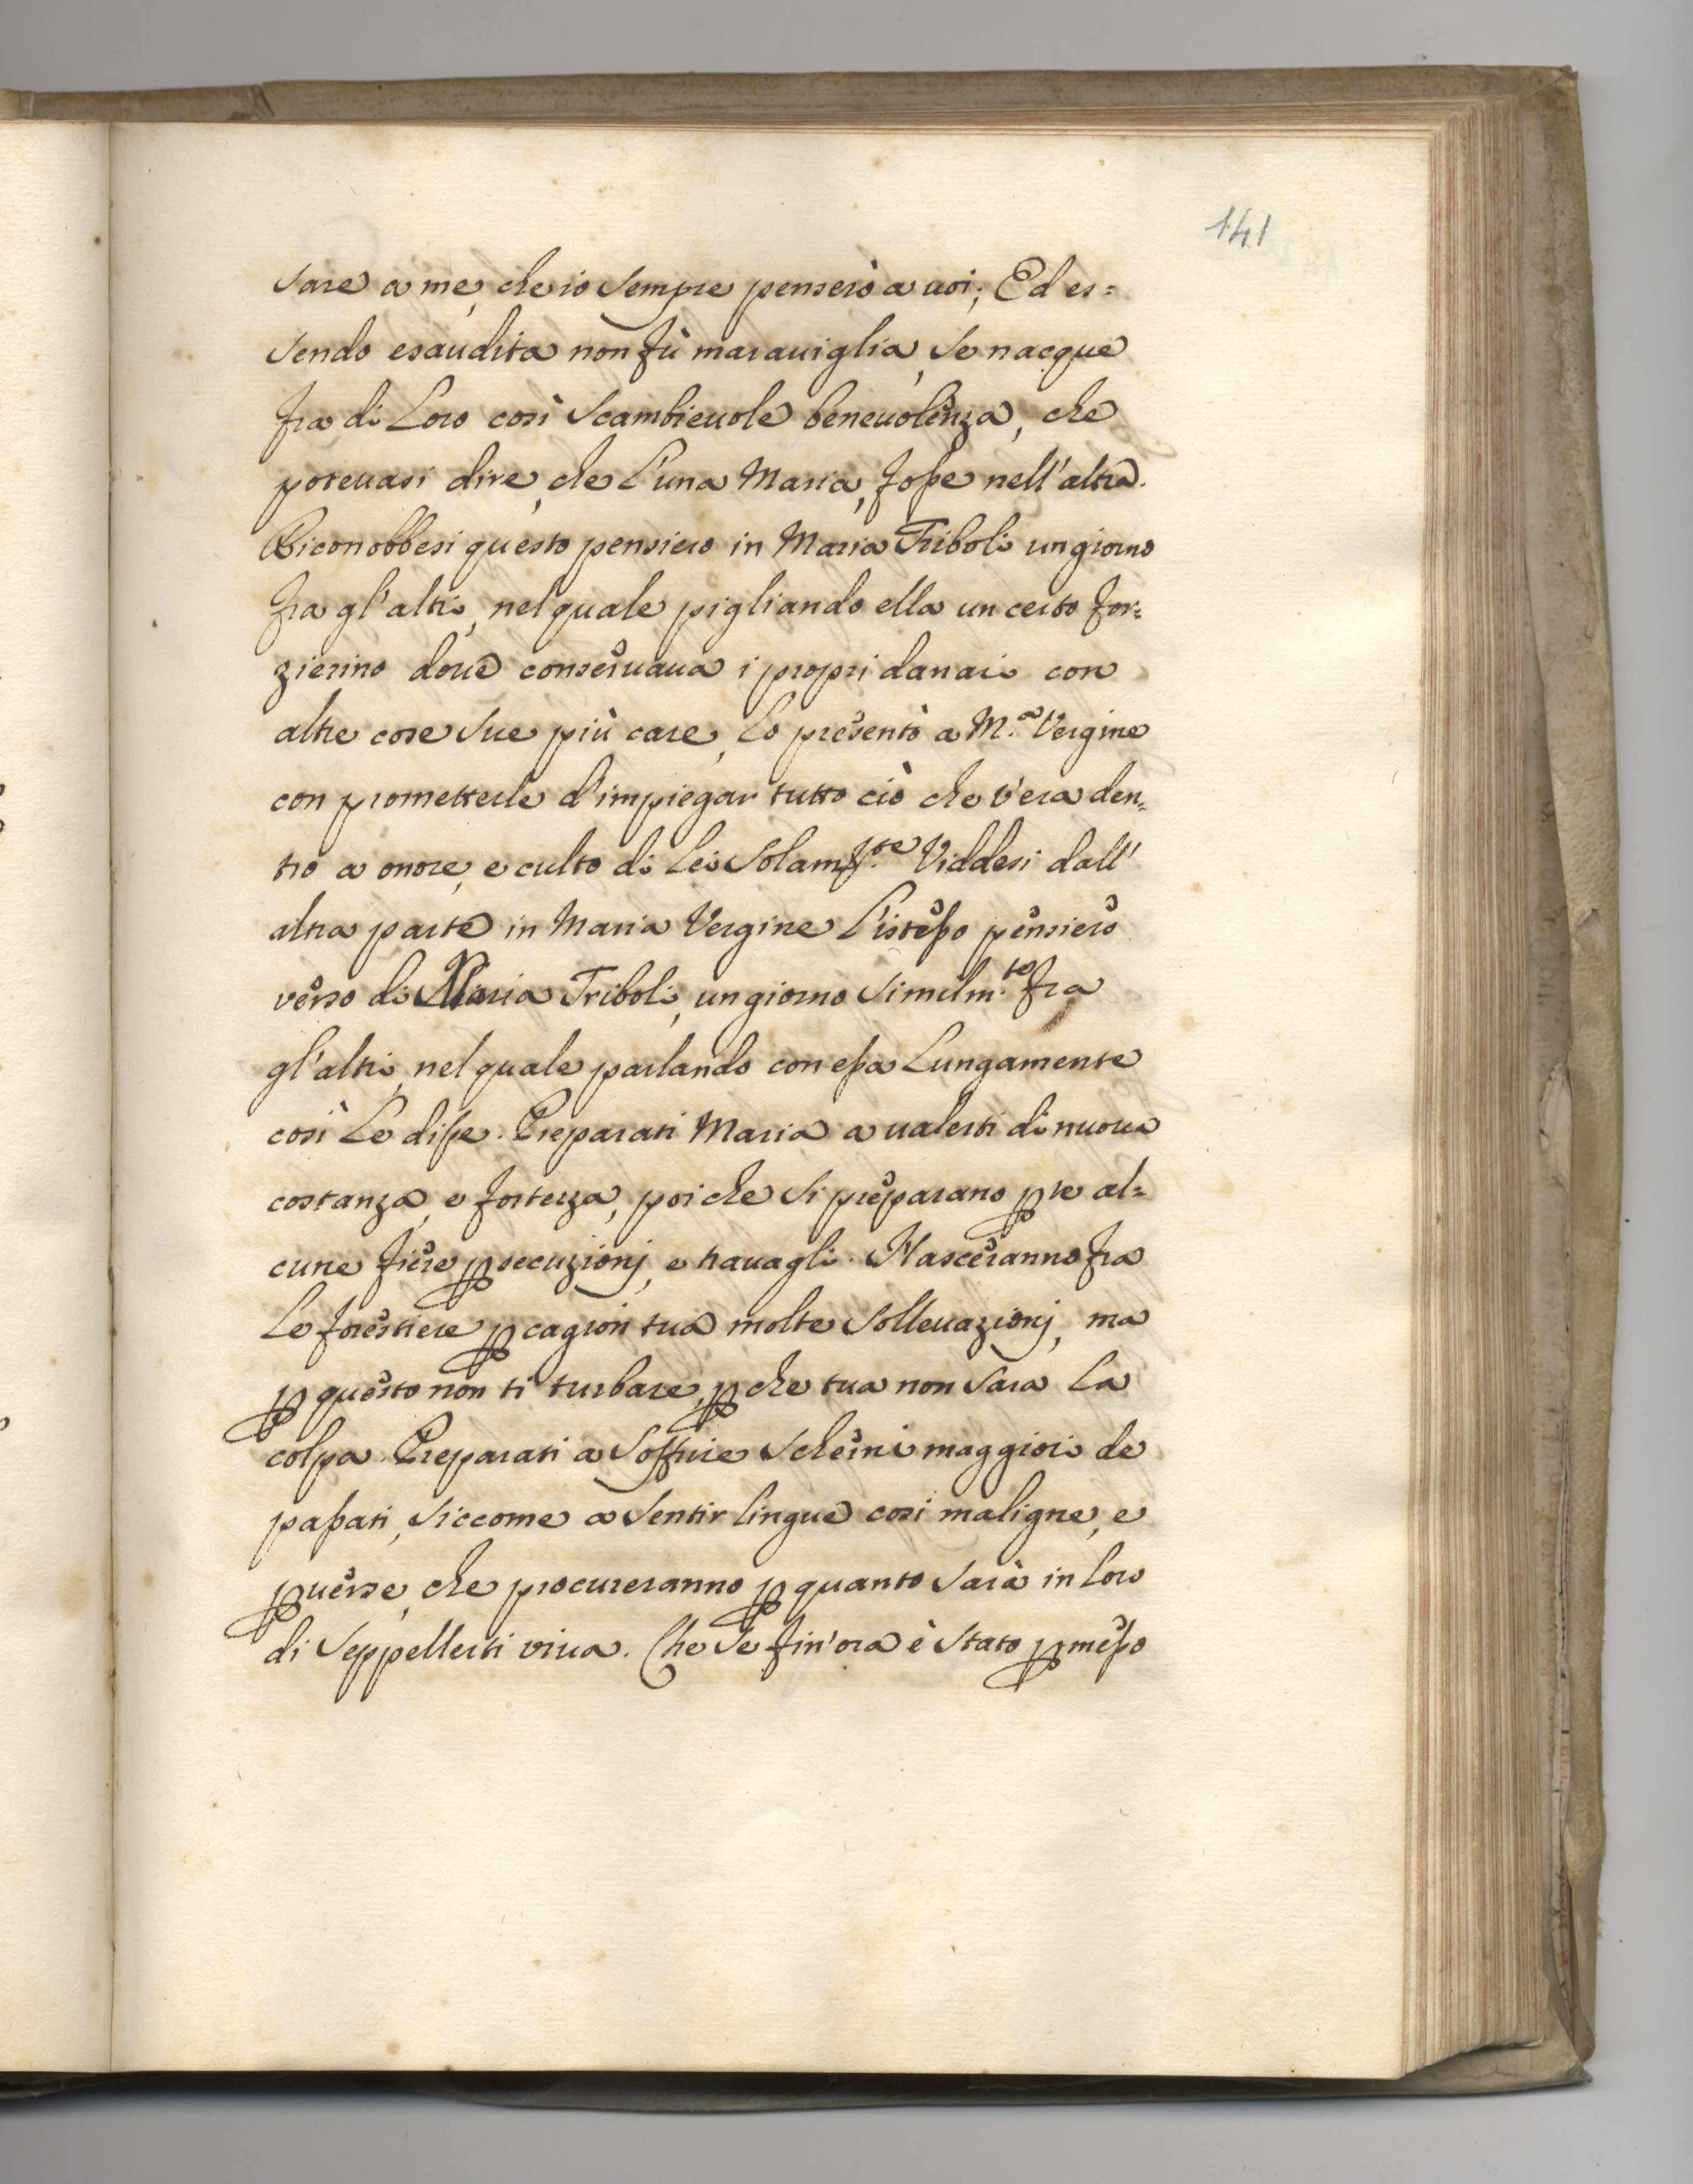 141
sare a me, che io sempre penserò a uoi; Ed es=
sendo esaudita non fù marauiglia, se nacque
fra di Loro così scambieuole beneuolenza, che
poteuasi dire, che l'una Maria, fosse nell'altra.
Riconobbesi questo pensiero in Maria Triboli un giorno
fra gl'altri, nel quale pigliando ella un certo for=
zierino doue conseruaua i propri danari con
altre cose sue più care, Lo presentò a M.ª Vergine
con prometterle d'impiegar tutto ciò che v'era den=
tro a onore, e culto di Lei solam.te Viddesi dall'
altra parte in Maria Vergine L'istesso pensiero
verso di Maria Triboli, un giorno similm.te fra
gl'altri, nel quale parlando con essa Lungamente
così Le disse. Preparati Maria a ualerti di nuoua
costanza, e fortezza, poi che si preparano p te al=
cune fiere psecuzionj, e trauagli. Nasceranno fra
Le forestiere p cagion tua molte solleuazionj, ma
p questo non ti turbare, pche tua non sara La
colpa. Preparati a soffrire scherni maggiori de
passati, siccome a sentir lingue così maligne, e
puerse, che procureranno p quanto sarà in loro
di seppellerti viua. Che se fin'ora è stato pmesso